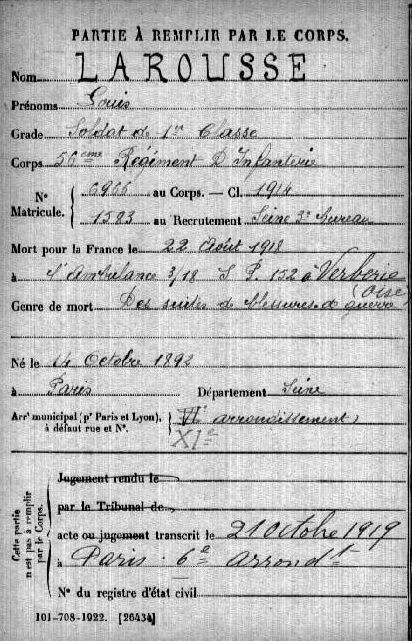 PARTIE À REMPLIR PAR LE CORPS.
Nom LAROUSSE
Prénoms Louis
Grade Soldat de 1re Classe
Corps 56eme Régiment D'Infanterie
N° Matricule. 6966 au Corps. — Cl. 1914
1583 au Recrutement Seine 3e Bureau
Mort pour la France le 22 Août 1918
à l'Ambulance 3/18 S.P. 152 à Verberie
(Oise)
Genre de mort Des suites de blessures de guerre
Né le 14 Octobre 1892
à Paris Département Seine
Arrt municipal (pr Paris et Lyon), à défaut rue et N°. VIe arrondissement
XIe
Cette partie n'est pas à remplir par le Corps.
Jugement rendu le
par le Tribunal de
acte ou jugement transcrit le 21 Octobre 1919
à Paris 6e arrondt
N° du registre d'état civil
101-708-1922. [26434]